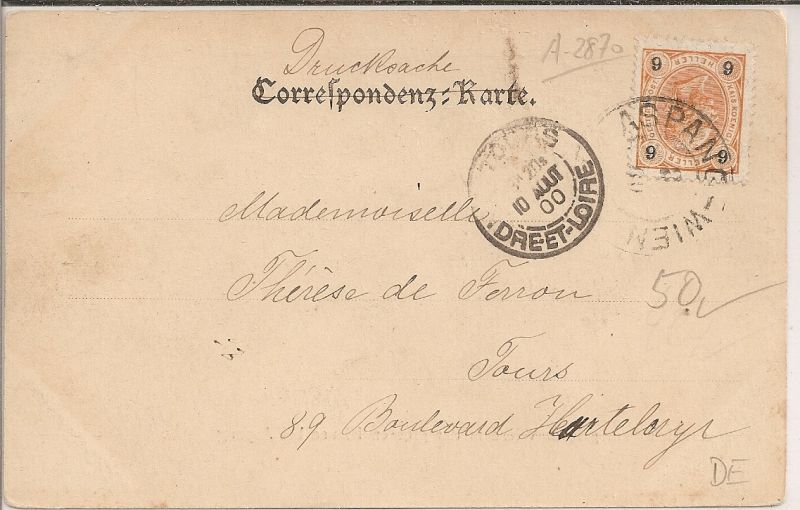 Drucksache
A-2870
Correspondenz-Karte.
6 6
HELLER
6 6
ASPANG
WIEN
TOURS
10 AOUT
00
INDRE-ET-LOIRE
Mademoiselle
Thérèse de Ferron
50,
Tours
89 Boulevard
DE